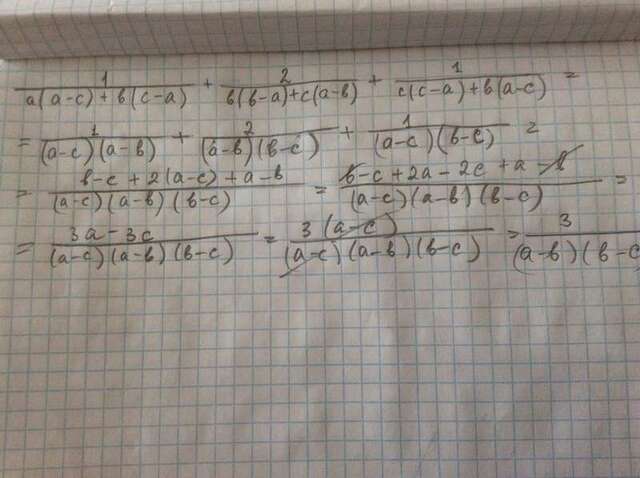 1/(a(a-c)+b(c-a)) + 2/(b(b-a)+c(a-b)) + 1/(c(c-a)+b(a-c)) =
= 1/((a-c)(a-b)) + 2/((a-b)(b-c)) + 1/((a-c)(b-c)) =
= (b-c+2(a-c)+a-b)/((a-c)(a-b)(b-c)) = (b-c+2a-2c+a-b)/((a-c)(a-b)(b-c)) =
= (3a-3c)/((a-c)(a-b)(b-c)) = 3(a-c)/((a-c)(a-b)(b-c)) = 3/((a-b)(b-c